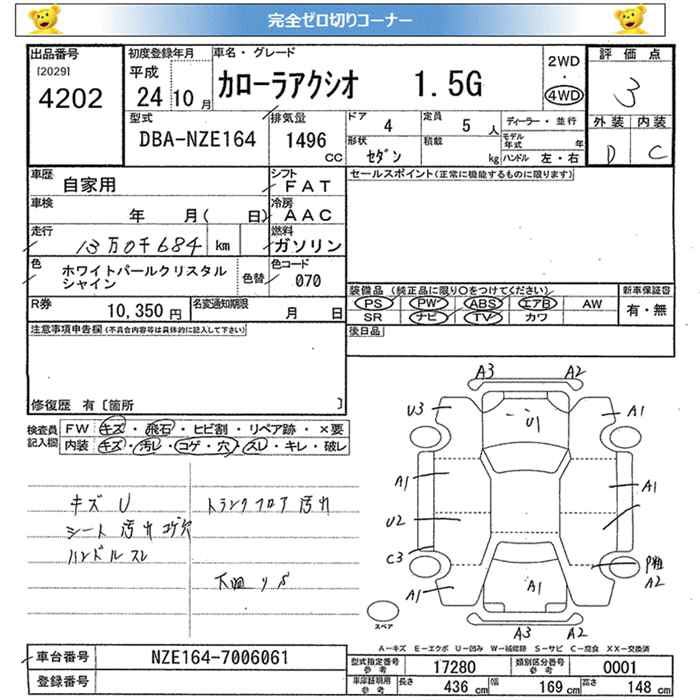 完全ゼロ切りコーナー
出品番号
[2029]
4202
初度登録年月
平成
24 10 月
車名・グレード
カローラアクシオ 1.5G
2WD
・
4WD
評価点
3
外装 内装
D C
型式
DBA-NZE164
排気量
1496
CC
ドア 4
定員 5 人
形状 セダン
積載 kg
ディーラー・並行
モデル年式 年
ハンドル 左・右
車歴 自家用
シフト FAT
車検 年 月( 日)
冷房 AAC
走行 13万0千684 km
燃料 ガソリン
色 ホワイトパールクリスタルシャイン
色替
色コード 070
R券 10,350 円
名変通知期限 月 日
セールスポイント(正常に機能するものに限ります)
装備品 (純正品に限り○をつけてください)
PS PW ABS エアB AW
SR ナビ TV カワ
新車保証書
有・無
後日品
注意事項申告欄(不具合内容等は具体的に記入して下さい)
修復歴 有[箇所 ]
検査員記入欄
FW キズ・飛石・ヒビ割・リペア跡・×要
内装 キズ・汚レ・コゲ・穴・スレ・キレ・破レ
キズ U
シート 汚れ コゲ穴
ハンドル スレ
トランクフロア 汚れ
下廻り サビ
A3 A2
U3 U1 A1
A1 A1
U2
C3 P粗
A2
A1 A1
A3 A2
スペア
A-キズ E-エクボ U-凹み W-補修跡 S-サビ C-腐食 XX-交換済
車台番号 NZE164-7006061
登録番号
型式指定番号 参考 17280
類別区分番号 参考 0001
車庫証明用 参考 長さ 436 cm 幅 169 cm 高さ 148 cm